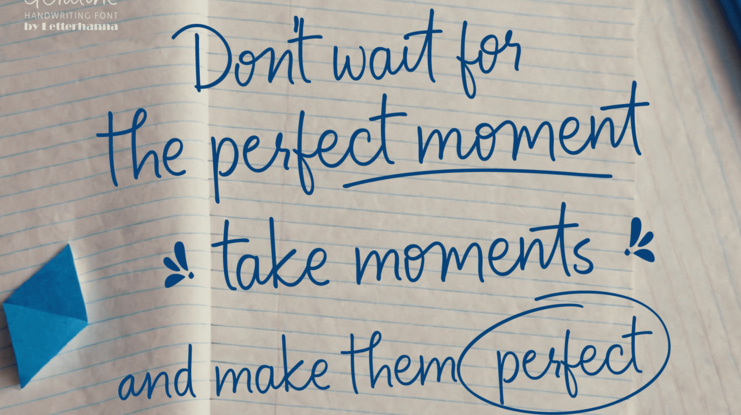 HANDWRITING FONT
by Letterhanna
Don't wait for
the perfect moment
take moments
and make them perfect